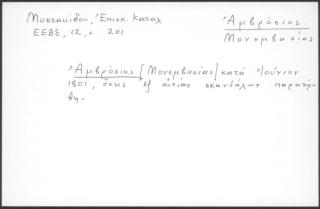 Μυστακίδου, Ἐπισκ. Καταλ
ΕΕΒΣ, 12, σ. 201
Ἀμβρόσιος
Μονεμβασίας
Ἀμβρόσιος [Μονεμβασίας] κατά Ἰούνιον
1801, ὅστις ἐξ αἰτίας σκανδάλων παρῃτή-
θη.